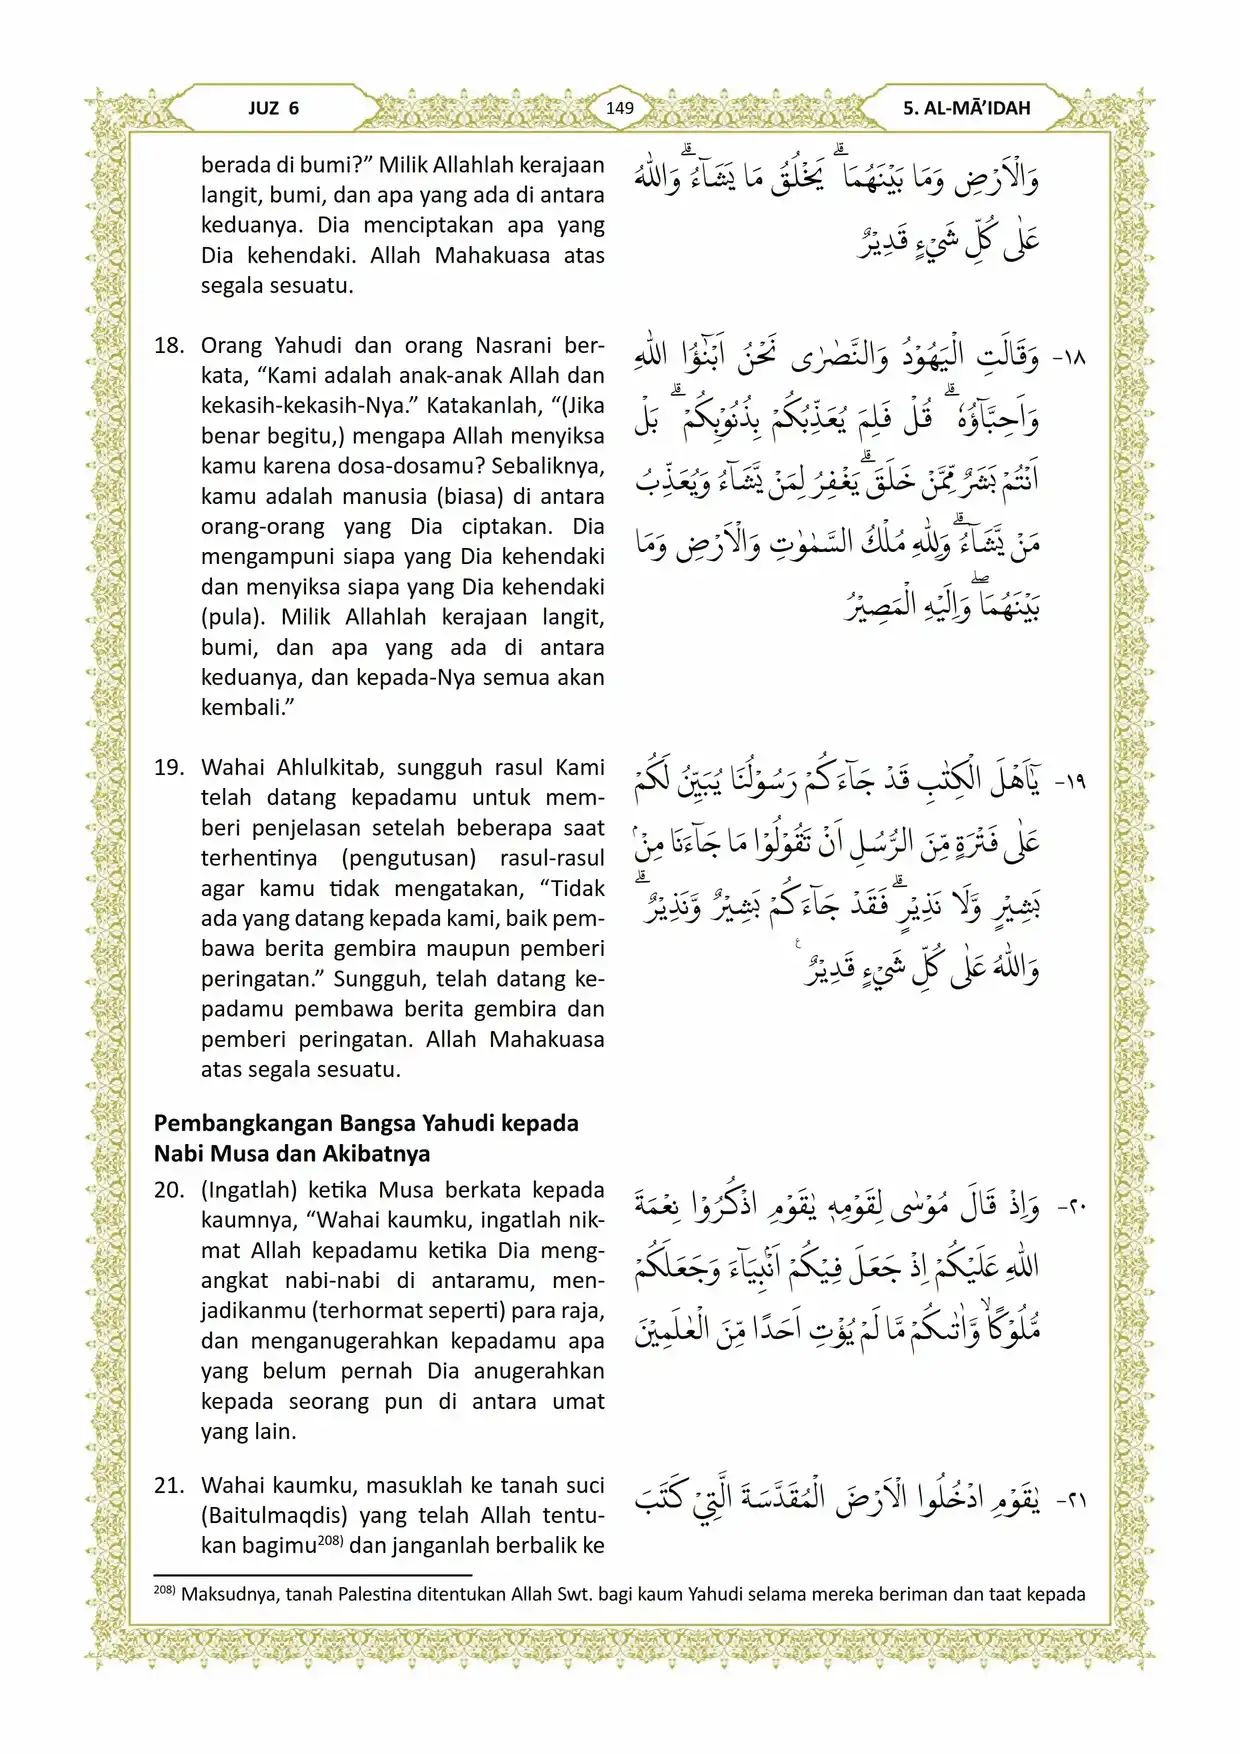 JUZ 6
149
5. AL-MĀ’IDAH
berada di bumi?” Milik Allahlah kerajaan
langit, bumi, dan apa yang ada di antara
keduanya. Dia menciptakan apa yang
Dia kehendaki. Allah Mahakuasa atas
segala sesuatu.
وَالْاَرْضِ وَمَا بَيْنَهُمَا ۗ يَخْلُقُ مَا يَشَاۤءُ ۗوَاللّٰهُ
عَلٰى كُلِّ شَيْءٍ قَدِيْرٌ
18. Orang Yahudi dan orang Nasrani ber-
kata, “Kami adalah anak-anak Allah dan
kekasih-kekasih-Nya.” Katakanlah, “(Jika
benar begitu,) mengapa Allah menyiksa
kamu karena dosa-dosamu? Sebaliknya,
kamu adalah manusia (biasa) di antara
orang-orang yang Dia ciptakan. Dia
mengampuni siapa yang Dia kehendaki
dan menyiksa siapa yang Dia kehendaki
(pula). Milik Allahlah kerajaan langit,
bumi, dan apa yang ada di antara
keduanya, dan kepada-Nya semua akan
kembali.”
١٨- وَقَالَتِ الْيَهُوْدُ وَالنَّصٰرٰى نَحْنُ اَبْنٰۤؤُا اللّٰهِ
وَاَحِبَّاۤؤُهٗ ۗ قُلْ فَلِمَ يُعَذِّبُكُمْ بِذُنُوْبِكُمْ ۗ بَلْ
اَنْتُمْ بَشَرٌ مِّمَّنْ خَلَقَۗ يَغْفِرُ لِمَنْ يَّشَاۤءُ وَيُعَذِّبُ
مَنْ يَّشَاۤءُۗ وَلِلّٰهِ مُلْكُ السَّمٰوٰتِ وَالْاَرْضِ وَمَا
بَيْنَهُمَا ۖوَاِلَيْهِ الْمَصِيْرُ
19. Wahai Ahlulkitab, sungguh rasul Kami
telah datang kepadamu untuk mem-
beri penjelasan setelah beberapa saat
terhentinya (pengutusan) rasul-rasul
agar kamu tidak mengatakan, “Tidak
ada yang datang kepada kami, baik pem-
bawa berita gembira maupun pemberi
peringatan.” Sungguh, telah datang ke-
padamu pembawa berita gembira dan
pemberi peringatan. Allah Mahakuasa
atas segala sesuatu.
١٩- يٰٓاَهْلَ الْكِتٰبِ قَدْ جَاۤءَكُمْ رَسُوْلُنَا يُبَيِّنُ لَكُمْ
عَلٰى فَتْرَةٍ مِّنَ الرُّسُلِ اَنْ تَقُوْلُوْا مَا جَاۤءَنَا مِنْۢ
بَشِيْرٍ وَّلَا نَذِيْرٍۗ فَقَدْ جَاۤءَكُمْ بَشِيْرٌ وَّنَذِيْرٌ ۗ
وَاللّٰهُ عَلٰى كُلِّ شَيْءٍ قَدِيْرٌ ࣖ
Pembangkangan Bangsa Yahudi kepada
Nabi Musa dan Akibatnya
20. (Ingatlah) ketika Musa berkata kepada
kaumnya, “Wahai kaumku, ingatlah nik-
mat Allah kepadamu ketika Dia meng-
angkat nabi-nabi di antaramu, men-
jadikanmu (terhormat seperti) para raja,
dan menganugerahkan kepadamu apa
yang belum pernah Dia anugerahkan
kepada seorang pun di antara umat
yang lain.
٢٠- وَاِذْ قَالَ مُوْسٰى لِقَوْمِهٖ يٰقَوْمِ اذْكُرُوْا نِعْمَةَ
اللّٰهِ عَلَيْكُمْ اِذْ جَعَلَ فِيْكُمْ اَنْۢبِيَاۤءَ وَجَعَلَكُمْ
مُّلُوْكًاۙ وَّاٰتٰىكُمْ مَّا لَمْ يُؤْتِ اَحَدًا مِّنَ الْعٰلَمِيْنَ
21. Wahai kaumku, masuklah ke tanah suci
(Baitulmaqdis) yang telah Allah tentu-
kan bagimu²⁰⁸⁾ dan janganlah berbalik ke
٢١- يٰقَوْمِ ادْخُلُوا الْاَرْضَ الْمُقَدَّسَةَ الَّتِيْ كَتَبَ
²⁰⁸⁾ Maksudnya, tanah Palestina ditentukan Allah Swt. bagi kaum Yahudi selama mereka beriman dan taat kepada